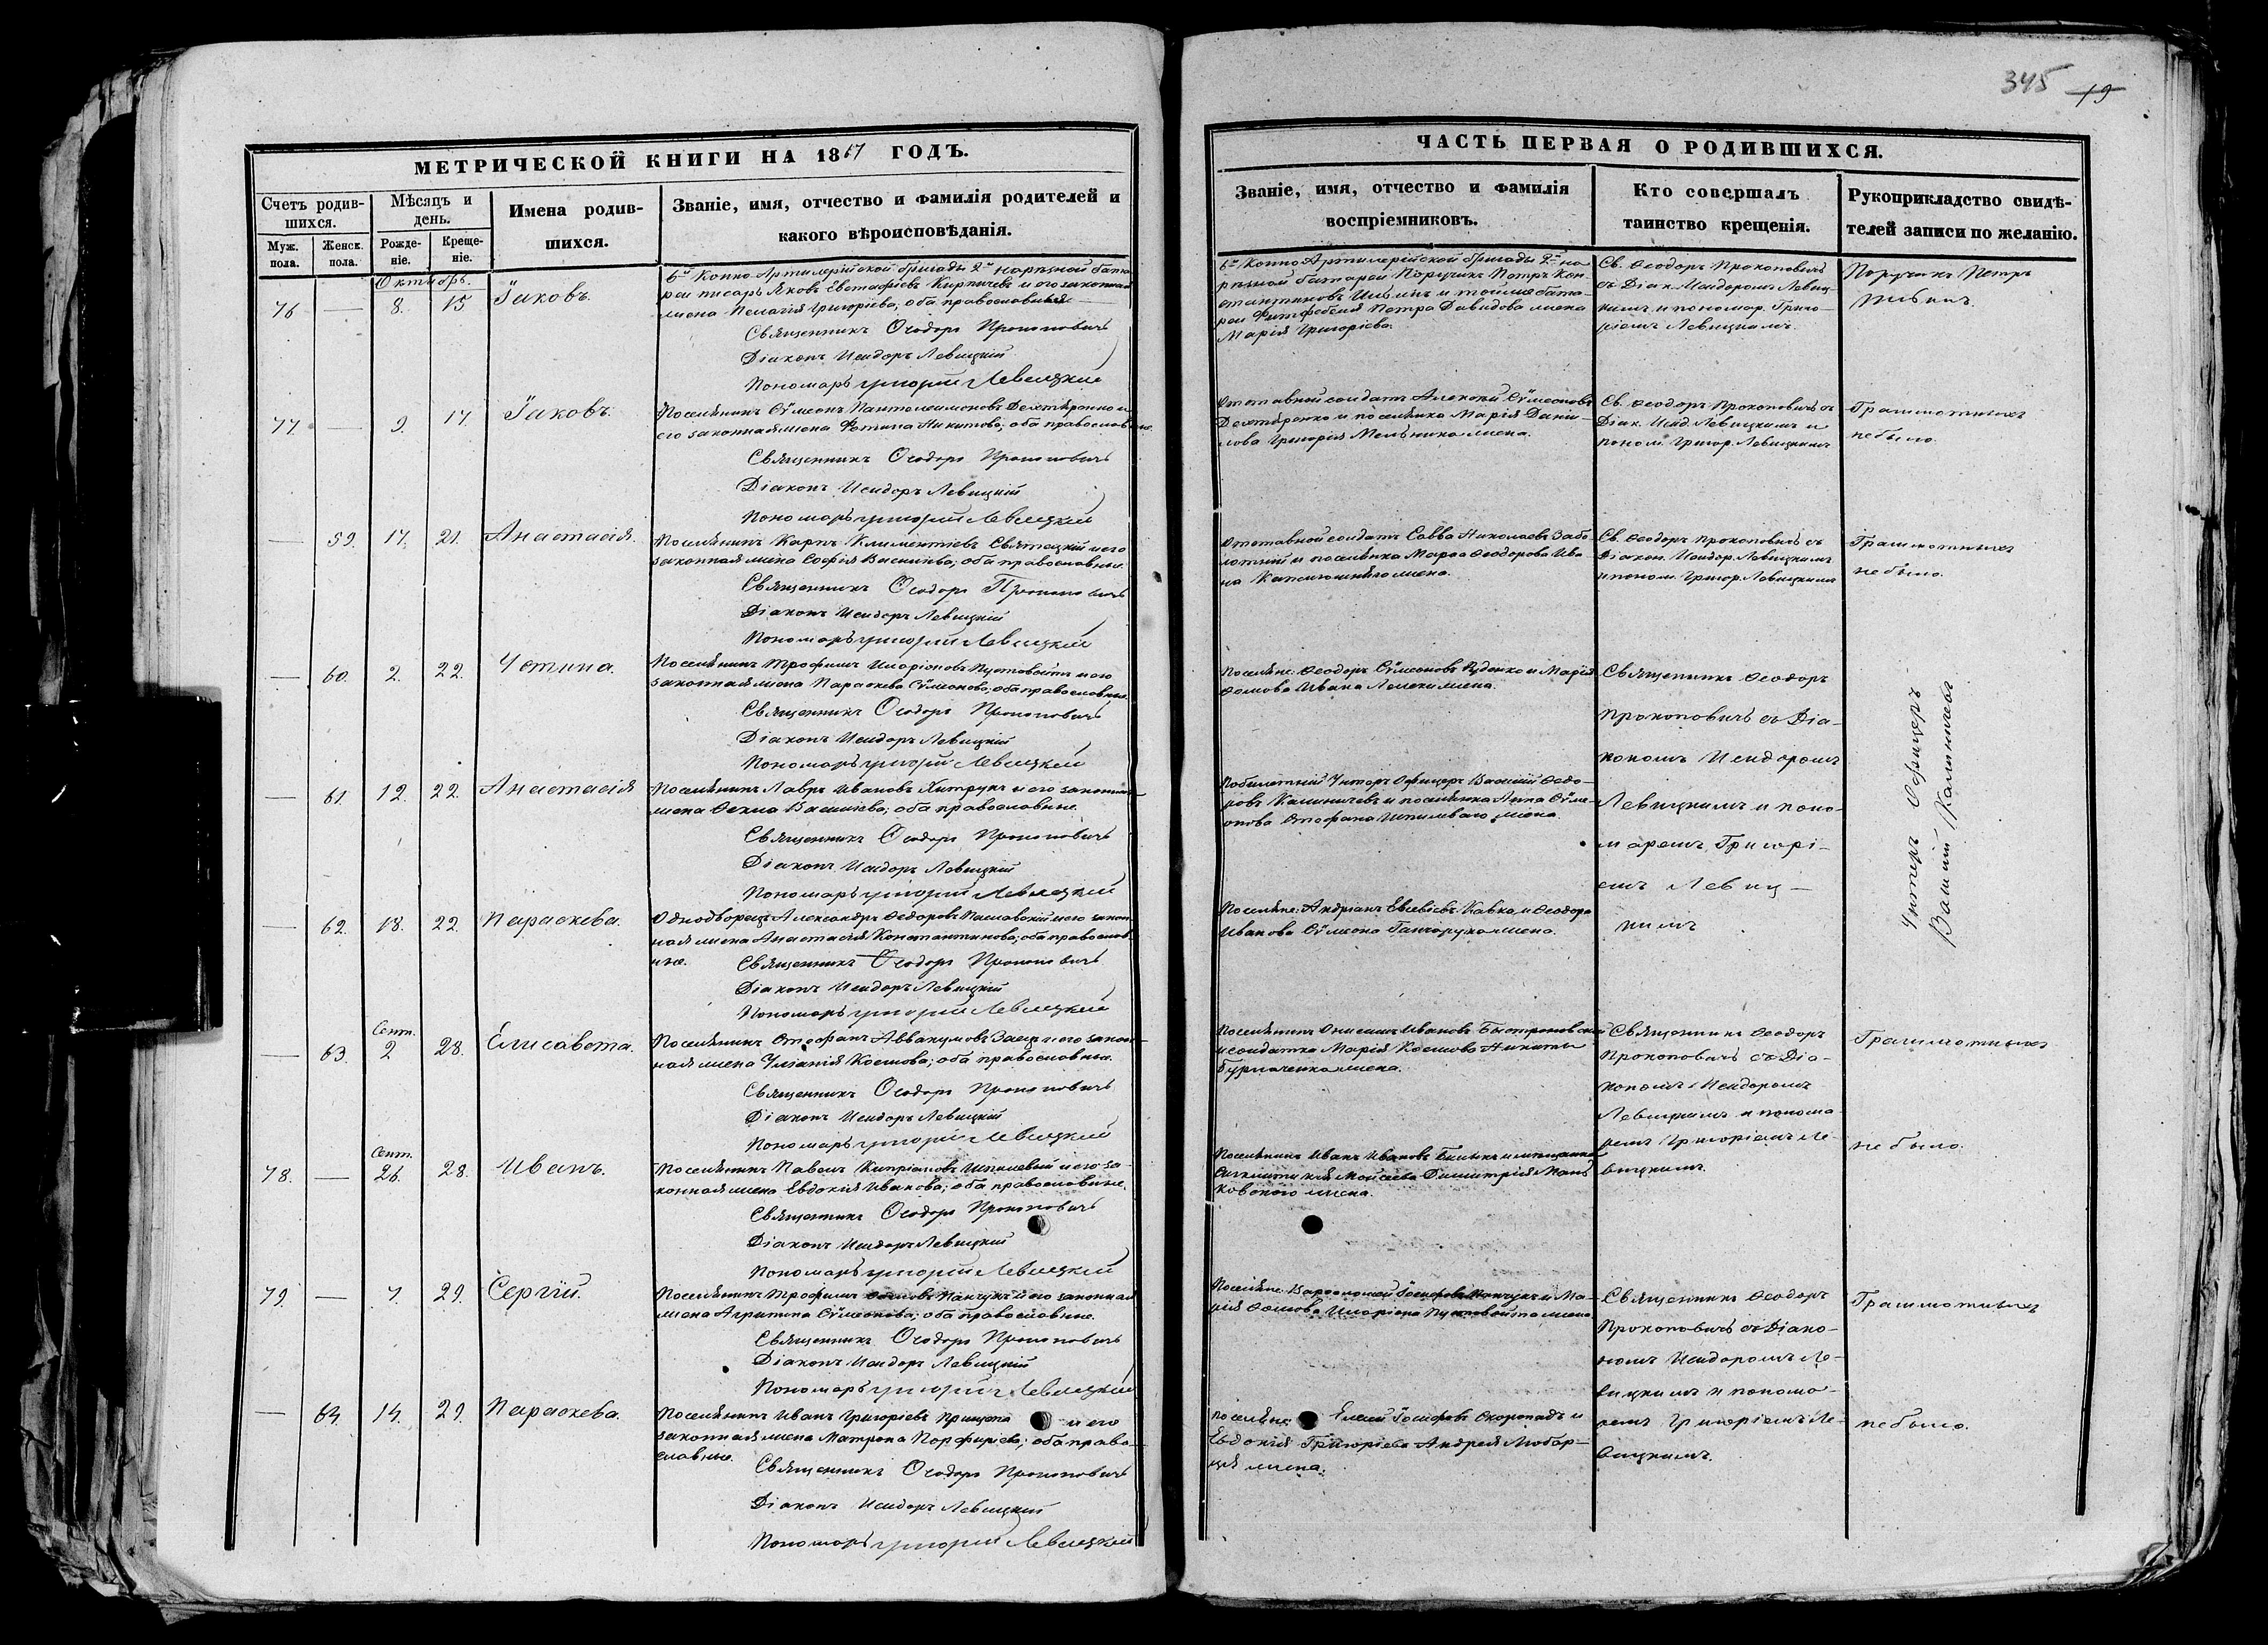 345 19
МЕТРИЧЕСКОЙ КНИГИ НА 1867 ГОДЪ.
Счетъ родив-
шихся.
Муж.
пола.
Женск.
пола.
Мѣсяцъ и
день.
Рожде-
ніе.
Креще-
ніе.
Имена родив-
шихся.
Званіе, имя, отчество и фамилія родителей и
какого вѣроисповѣданія.
Октябрь.
76 — 8. 15 Іаковъ.
писарь Яковъ Евстафіевъ Кирпичевъ и его законная
жена Пелагія Григоріева, оба православные
Священникъ Ѳеодоръ Прокоповичъ
Діаконъ Исидоръ Левицкій
Пономарь Григорій Левицкій
77. — 9. 17. Іаковъ.
Поселянинъ Сѵмеонъ Пантелеимоновъ Дехтяренко и
его законная жена Фотина Никитова; оба православные.
Священникъ Ѳеодоръ Прокоповичъ
Діаконъ Исидоръ Левицкій
Пономарь Григорій Левицкій
— 59. 17. 21. Анастасія.
Поселянинъ Карпъ Климентіевъ Святецкій и его
законная жена Софія Васильева; оба православные.
Священникъ Ѳеодоръ Прокоповичъ
Діаконъ Исидоръ Левицкій
Пономарь Григорій Левицкій
— 60. 2. 22. Устина.
Поселянинъ Трофимъ Иларіоновъ Пустовойтъ и его
законная жена Параскева Сѵмеонова; оба православные.
Священникъ Ѳеодоръ Прокоповичъ
Діаконъ Исидоръ Левицкій
Пономарь Григорій Левицкій
— 61. 12. 22. Анастасія
Поселянинъ Лавръ Ивановъ Хитрукъ и его законная
жена Ѳекла Василіева; оба православные.
Священникъ Ѳеодоръ Прокоповичъ
Діаконъ Исидоръ Левицкій
Пономарь Григорій Левицкій
— 62. 18. 22. Параскева.
Однодворецъ Александръ Ѳеодоровъ и его закон-
ная жена Анастасія Константинова; оба православ-
ные. Священникъ Ѳеодоръ Прокоповичъ
Діаконъ Исидоръ Левицкій
Пономарь Григорій Левицкій
Сент.
— 63. 2 28. Елисавета.
Поселянинъ Стефанъ Аввакумовъ Заецъ и его закон-
ная жена Уліанія Космова; оба православные.
Священникъ Ѳеодоръ Прокоповичъ
Діаконъ Исидоръ Левицкій
Пономарь Григорій Левицкій
Сент.
78. — 26. 28. Иванъ.
Поселянинъ Павелъ Кипріановъ Шпилевый и его за-
конная жена Евдокія Иванова; оба православные.
Священникъ Ѳеодоръ Прокоповичъ
Діаконъ Исидоръ Левицкій
Пономарь Григорій Левицкій
79. — 7. 29. Сергій.
Поселянинъ Трофимъ Панчукъ и его законная
жена Агрипина Сѵмеонова; оба православные.
Священникъ Ѳеодоръ Прокоповичъ
Діаконъ Исидоръ Левицкій
Пономарь Григорій Левицкій
— 64. 14. 29. Параскева.
Поселянинъ Иванъ Григоріевъ Прищепа и его
законная жена Матрона Порфиріева; оба право-
славные.
Священникъ Ѳеодоръ Прокоповичъ
Діаконъ Исидоръ Левицкій
Пономарь Григорій Левицкій
ЧАСТЬ ПЕРВАЯ О РОДИВШИХСЯ.
Званіе, имя, отчество и фамилія
воспріемниковъ.
Кто совершалъ
таинство крещенія.
Рукоприкладство свидѣ-
телей записи по желанію.
Поручикъ Петръ Кон-
стантиновъ и тойже бата-
реи Фитфебеля Петра Давидова жена
Марія Григоріева.
Св. Ѳеодоръ Прокоповичъ
съ Діак. Исидоромъ Левиц-
кимъ и пономар. Григо-
ріемъ Левицкимъ.
Поручикъ Петръ
Отставной солдатъ Алексій Сѵмеоновъ
Дехтяренко и поселянка Марія Дании-
лова Григорія Мельника жена.
Св. Ѳеодоръ Прокоповичъ съ
Діак. Исид. Левицкимъ и
поном. Григор. Левицкимъ
Грамотныхъ
не было.
Отставной солдатъ Савва Николаевъ Забо-
лотній и поселянка Марѳа Ѳеодорова Ива-
на жена.
Св. Ѳеодоръ Прокоповичъ съ
Діакон. Исидор. Левицкимъ
и поном. Григор. Левицкимъ
Грамотныхъ
не было.
Поселяне: Ѳеодоръ Сѵмеоновъ Руденко и Марія
Ѳомова Ивана жена.
Священникъ Ѳеодоръ
Прокоповичъ съ Діа-
кономъ Исидоромъ
Левицкимъ и поно-
маремъ Григорі-
емъ Левиц-
кимъ
Унтеръ Офицеръ
Василій Калиничевъ
Унтеръ Офицеръ Василій Ѳеодо-
ровъ Калиничевъ и поселянка Анна Сѵме-
онова Стефана Шпилеваго жена.
Поселяне: Андріанъ Евсевіевъ Кавка и Ѳеодора
Иванова Сѵмеона Ганчарука жена.
Поселянинъ Онисимъ Ивановъ Быстроновскій
и солдатка Марія Космова Никиты
Бурлаченка жена.
Священникъ Ѳеодоръ
Прокоповичъ съ Діа-
кономъ Исидоромъ
Левицкимъ и понома-
ремъ Григоріемъ Ле-
вицкимъ.
Грамотныхъ
не было.
Поселянинъ Иванъ Ивановъ и мещанка
Моисеева Димитрія Мань-
ковского жена.
Поселяне: Варѳоломей Іосифовъ Панчукъ и Ма-
рія Ѳомова Иларіона Пустовойта жена.
Священникъ Ѳеодоръ
Прокоповичъ съ Діако-
номъ Исидоромъ Ле-
вицкимъ и понома-
ремъ Григоріемъ Ле-
вицкимъ.
Грамотныхъ
не было.
поселяне: Елисей Іосифовъ Скоропадъ и
Евдокія Григоріева Андрея Любар-
ця жена.